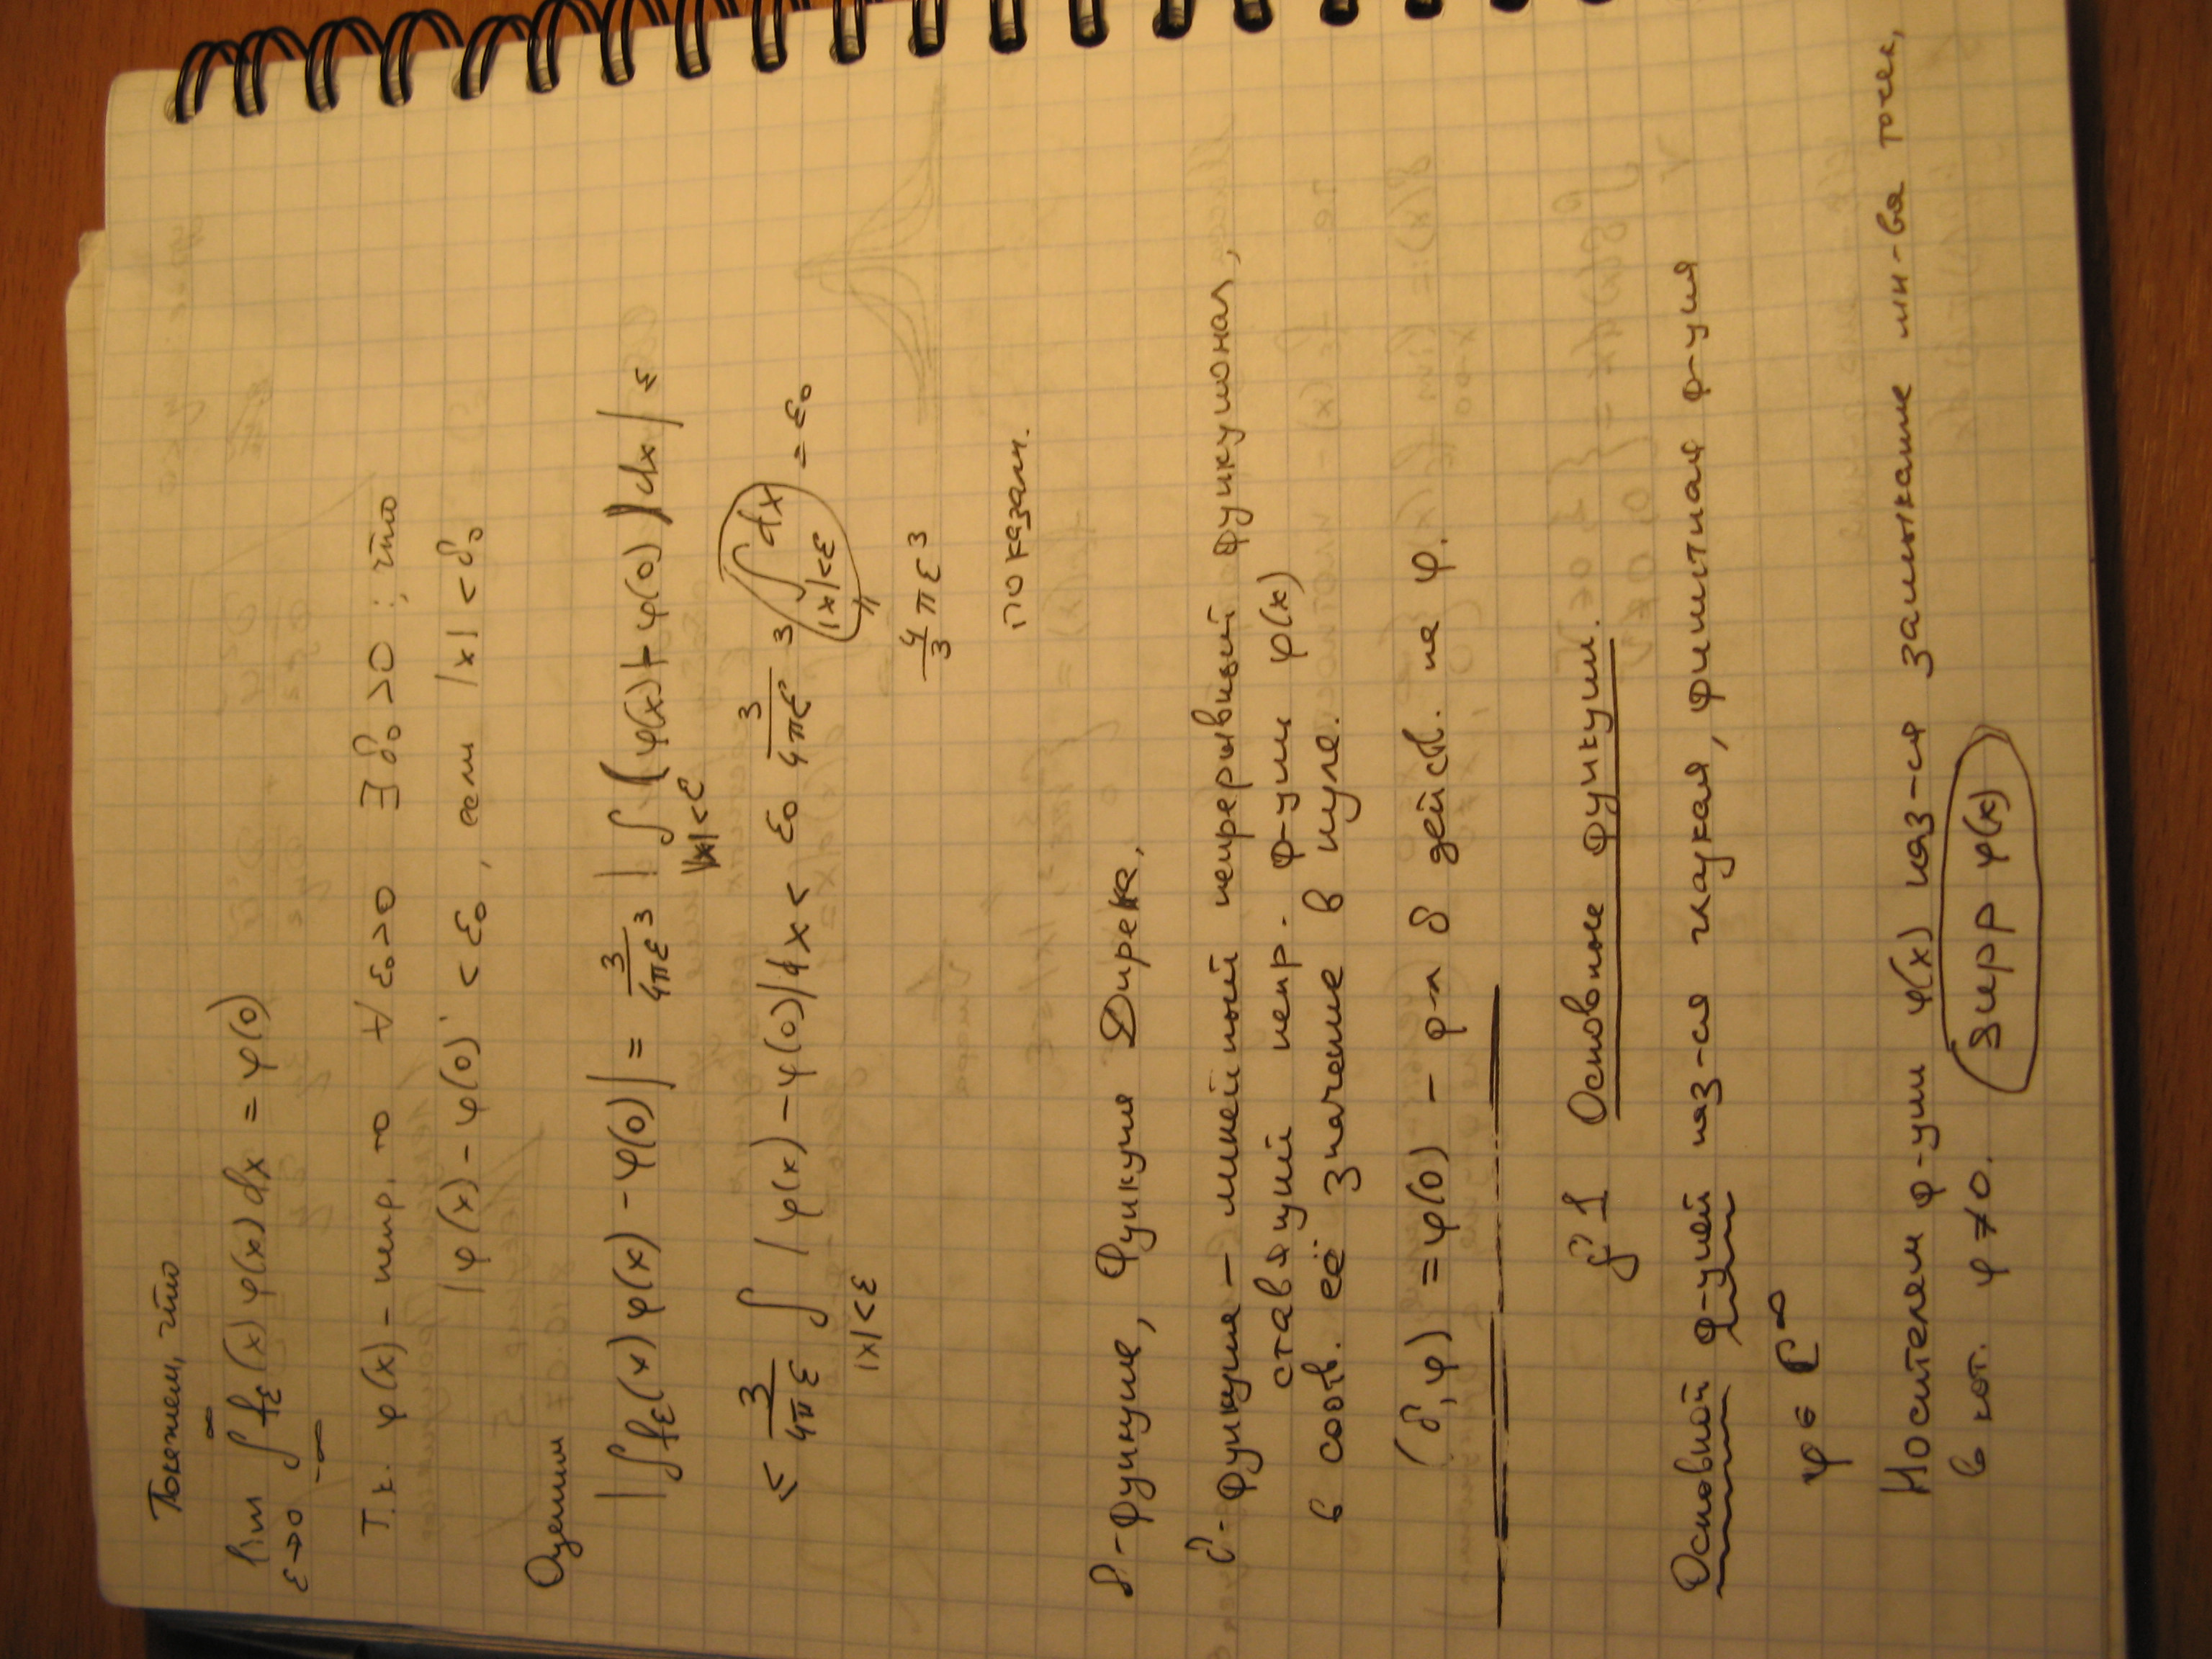 Покажем, что
lim ε→0 ∫_{-∞}^{∞} f_ε(x) φ(x) dx = φ(0)
Т.к. φ(x) – непр, то ∀ ε₀>0 ∃ δ₀>0 : что
|φ(x) – φ(0)| < ε₀, если |x| < δ₀
Оценим
|∫ f_ε(x) φ(x) – φ(0)| = 3/4πε³ |∫_{|x|<ε} (φ(x) – φ(0)) dx| ≤
≤ 3/4πε ∫_{|x|<ε} |φ(x) – φ(0)| dx < ε₀ 3/4πε³ ∫_{|x|<ε} dx = ε₀
=
4/3 πε³
показали.
δ-функция, Функция Дирека.
δ-функция – линейный непрерывный функционал,
ставящий непр. ф-ции φ(x)
в соотв. её значение в нуле.
(δ, φ) = φ(0) – ф-л δ дейст. на φ.
§1 Основные функции.
Основной ф-цией наз-ся гладкая, финитная ф-ция
φ ∈ C^∞
Носителем ф-ции φ(x) наз-ся замыкание мн-ва точек,
в кот. φ≠0. supp φ(x)